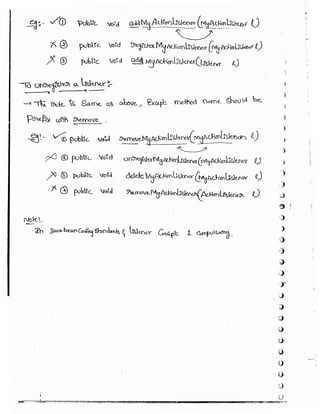 eg:- ✓① public void addMyActionListener(MyActionListener l)
✗ ② public void registerMyActionListener(MyActionListener l)
✗ ③ public void addMyActionListener(Listener l)
To unregister a listener:-
→ The rule is same as above, Except method name should be
prefix with remove.
eg:- ✓① public void removeMyActionListener(MyActionListener l)
✗ ② public void unregisterMyActionListener(MyActionListener l)
✗ ③ public void deleteMyActionListener(MyActionListener l)
✗ ④ public void removeMyActionListener(ActionListener l)
Note:-
In Java bean Coding Standards & listener Concept is compulsory.